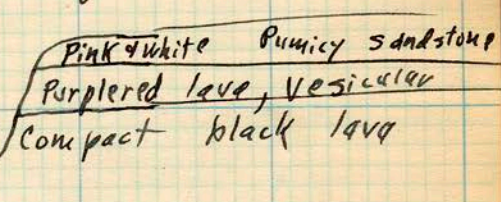 Pink & white Pumicy sandstone
Purplered lava, vesicular
Compact black lava